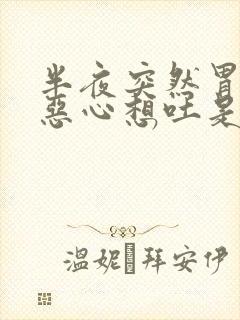 半夜突然冒
惡心想吐是
溫妮 拜安伊